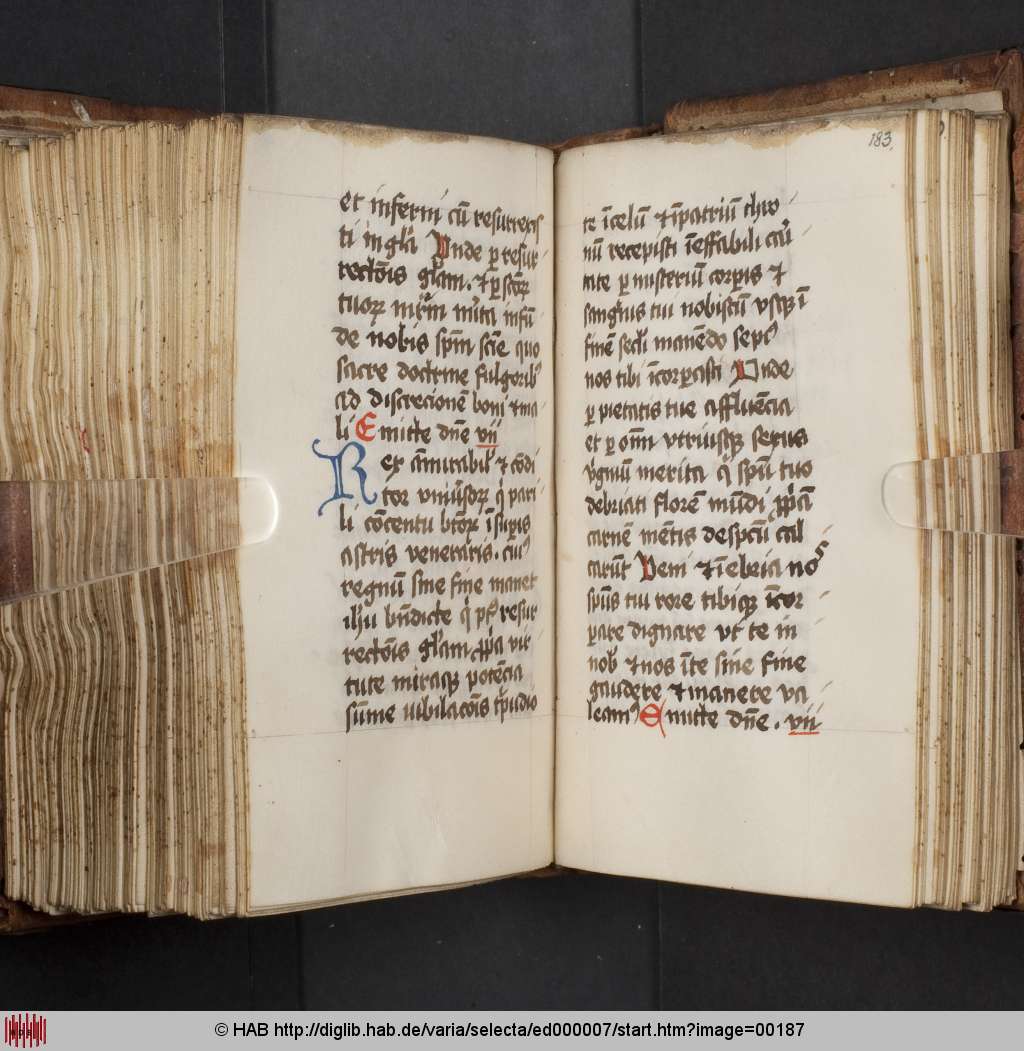 et inferni cū resurrexis
ti in gl'a Vnde ꝑ resur
rectōis gl'am. ⁊ ꝑ scōꝝ
tuoꝝ mr̄m mīta infū
de nobis spm̄ scīe quo
sacre doctrine fulgorib9
ad discrecionē boni ⁊ ma
li Emitte dn̄e vij
Rex āmirabil' ⁊ cōdi
tor vniūsoꝝ q' pari
li cōcentu btōꝝ ī suꝑis
astris veneraris. cui9
regnū sine fine manet
ihū bn̄dicte q' p9t resur
rectōis gl'am ꝓpa vir
tute miraqꝫ potēcia
sūme iubilacōis tpudio
183.
te ī celū ⁊ ī patriū thro
nū recepisti ī effabili cāi
tate ꝑ misteriū corꝑis ⁊
sangīs tui nobiscū vsqꝫ ī
finē secl'i manēdo sep9
nos tibi īcorꝑasti Vnde
ꝑ pietatis tue affluēcia
et ꝑ om̄m vtriusqꝫ sexus
v'gīnū merita q' spū tuo
debriati florē mūdi ꝓpa
carnē mētis despectū cal
carūt Veni ⁊ īebria nos
spūs tui rore tibiqꝫ īcor
pare dignare vt te in
nob ⁊ nos ī te sine fine
gaudere ⁊ manere va
leam9 Emitte dn̄e . vij
© HAB http://diglib.hab.de/varia/selecta/ed000007/start.htm?image=00187